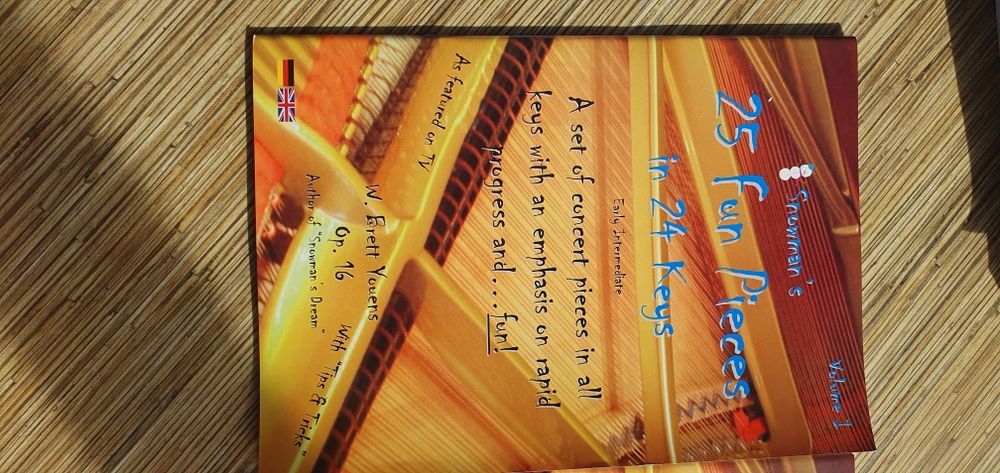 Volume 1
Snowman's
25 Fun Pieces
in 24 Keys
Early Intermediate
A set of concert pieces in all
keys with an emphasis on rapid
progress and...fun!
As featured on TV
W. Brett Youens
Op. 16
With "Tips & Tricks"
Author of "Snowman's Dream"